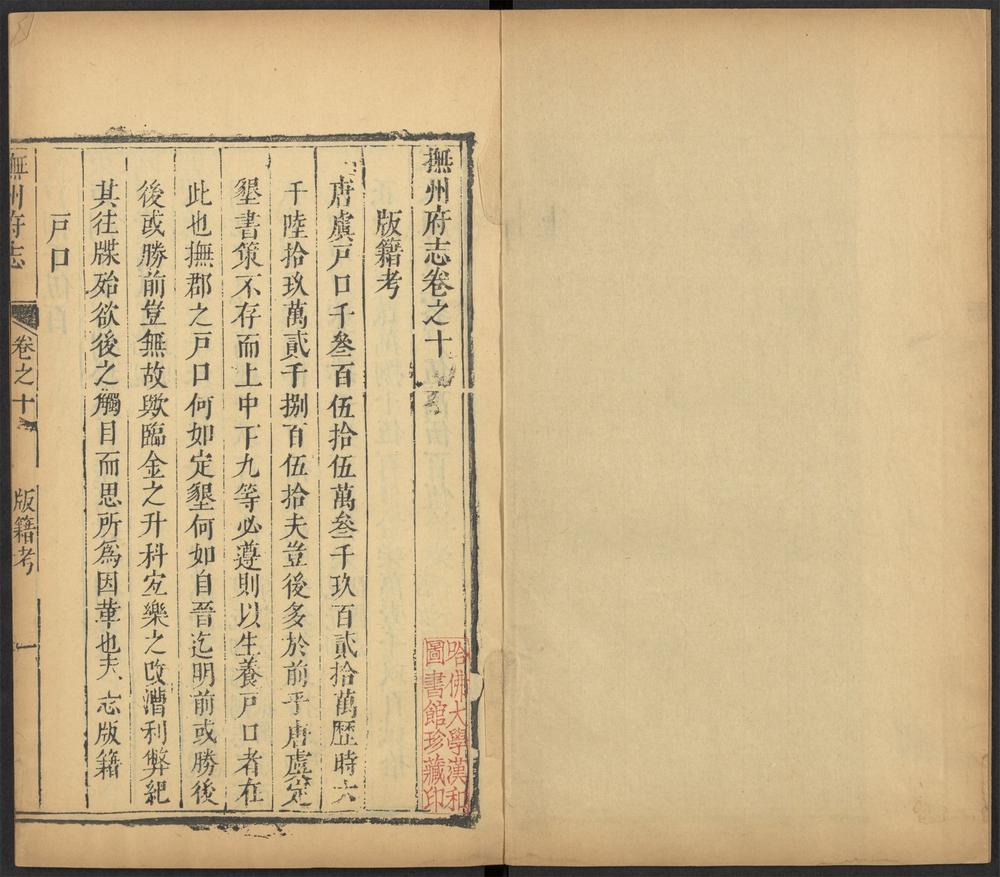 撫州府志卷之十
版籍考
唐虞戸口千叄百伍拾伍萬叄千玖百貳拾萬歷時六
千陸拾玖萬貳千捌百伍拾夫豈後多於前乎唐虞定
墾書策不存而上中下九等必遵則以生養戸口者在
此也撫郡之戸口何如定墾何如自晉迄明前或勝後
後或勝前豈無故歟臨金之升科宜樂之改漕利弊紀
其往牒殆欲後之觸目而思所爲因革也夫志版籍
戸口
撫州府志
卷之十
版籍考
一
哈佛大學漢和
圖書館珍藏印